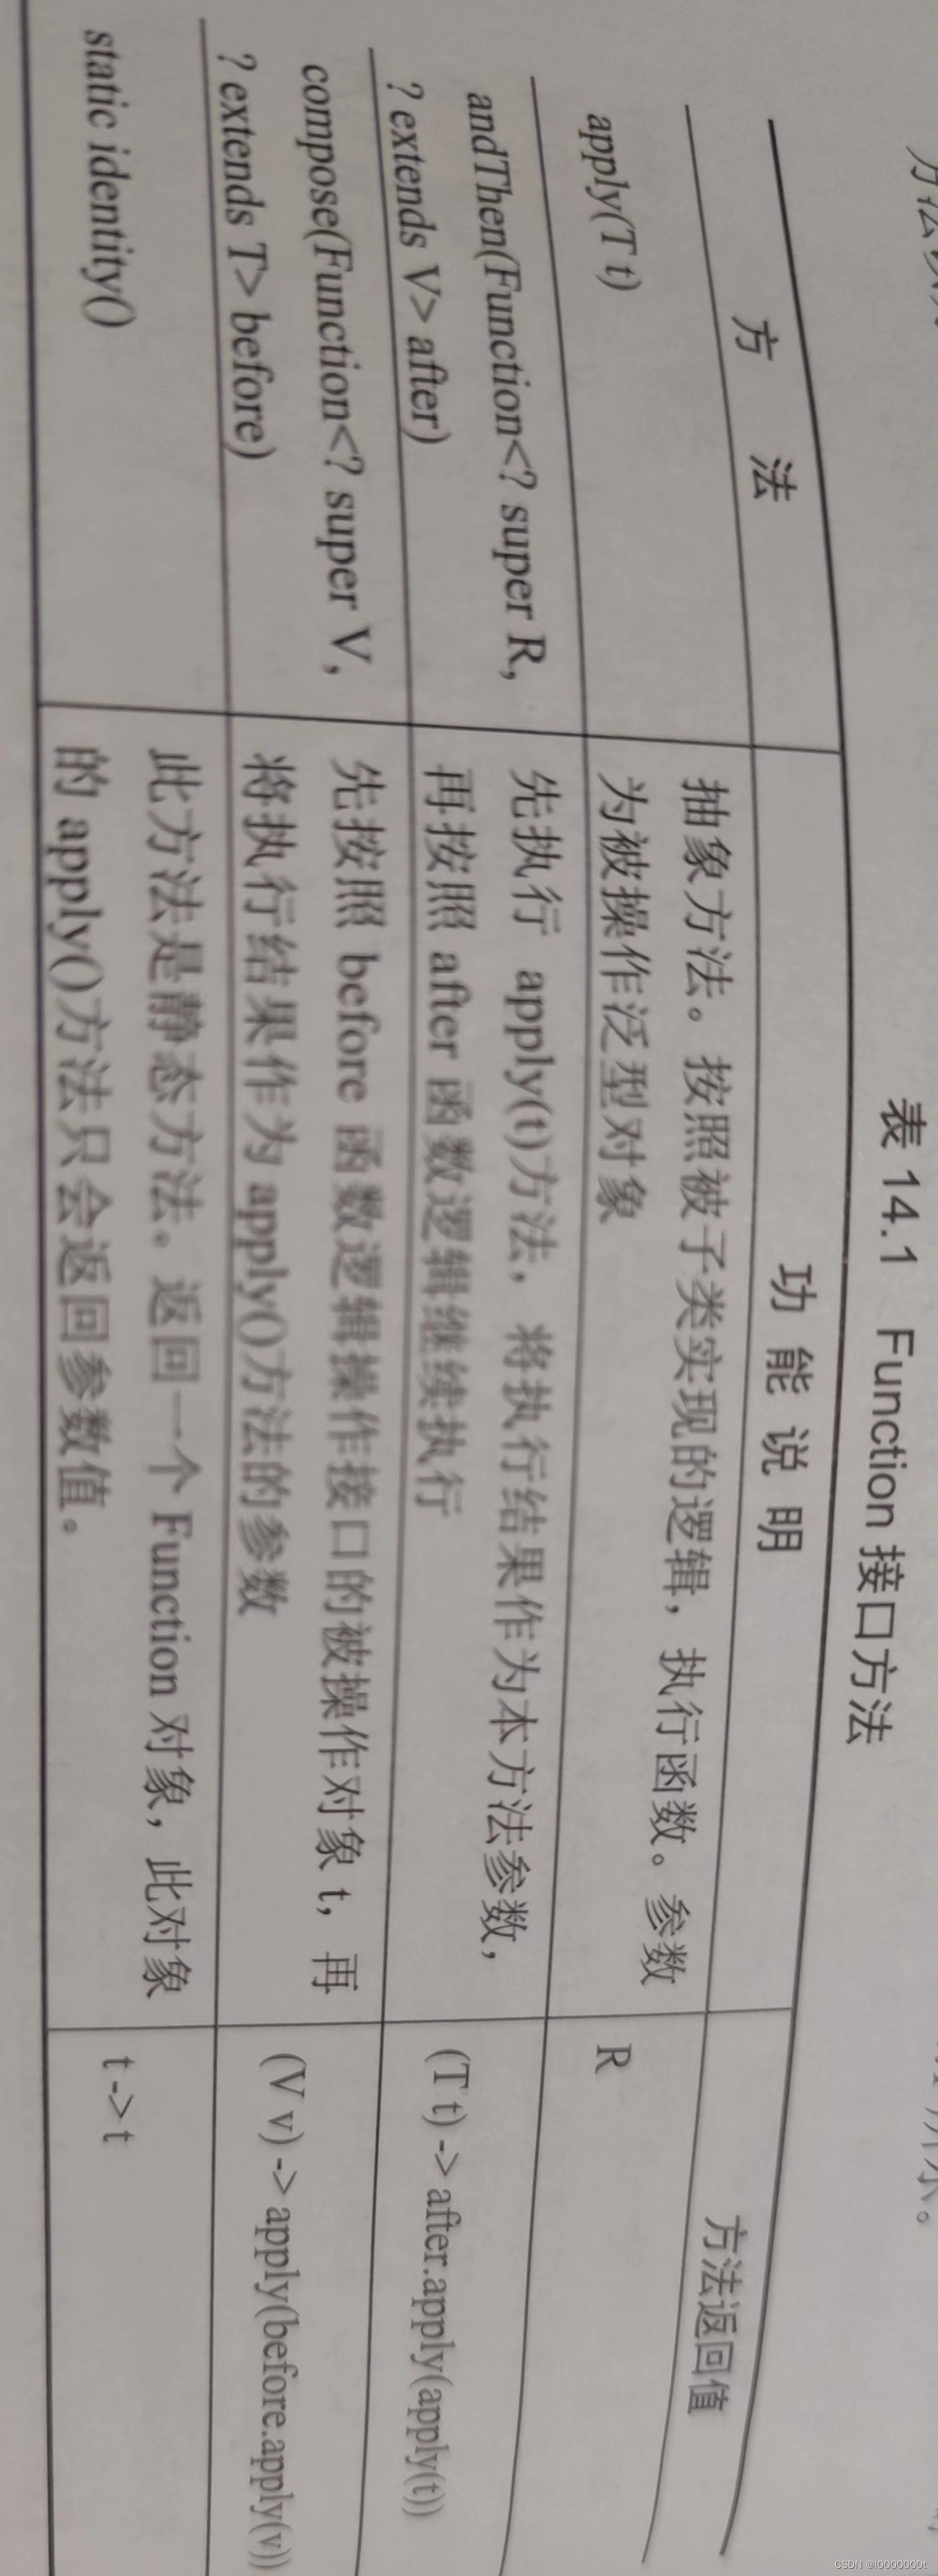 表 14.1 Function 接口方法
方 法
功 能 说 明
方法返回值
apply(T t)
抽象方法。按照被子类实现的逻辑，执行函数。参数
为被操作泛型对象
R
andThen(Function<? super R,
? extends V> after)
先执行 apply(t)方法，将执行结果作为本方法参数，
再按照 after 函数逻辑继续执行
(T t) -> after.apply(apply(t))
compose(Function<? super V,
? extends T> before)
先按照 before 函数逻辑操作接口的被操作对象 t，再
将执行结果作为 apply()方法的参数
(V v) -> apply(before.apply(v))
static identity()
此方法是静态方法。返回一个 Function 对象，此对象
的 apply()方法只会返回参数值。
t -> t